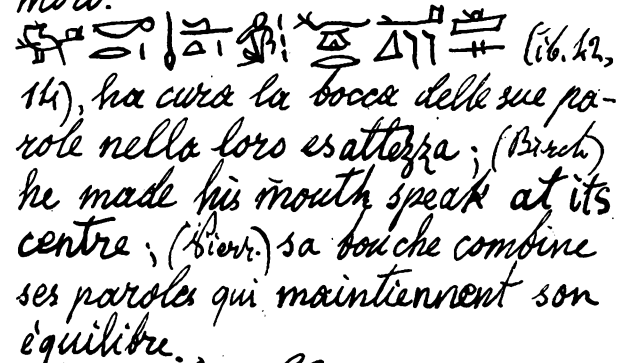 (ib. 42,
14), ha cura la bocca delle sue pa-
role nella loro esattezza; (Birch)
he made his mouth speak at its
centre; (Pierr.) sa bouche combine
ses paroles qui maintiennent son
équilibre.